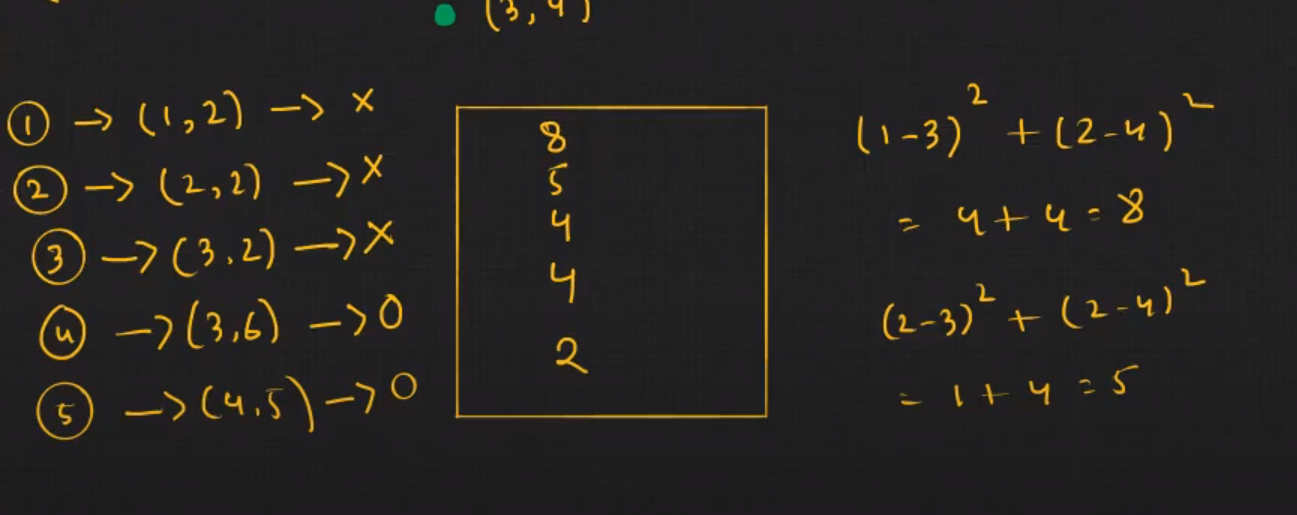 (3, 4)
① → (1, 2) → x
② → (2, 2) → x
③ → (3, 2) → x
④ → (3, 6) → 0
⑤ → (4, 5) → 0
8
5
4
4
2
(1-3)² + (2-4)²
= 4 + 4 = 8
(2-3)² + (2-4)²
= 1 + 4 = 5